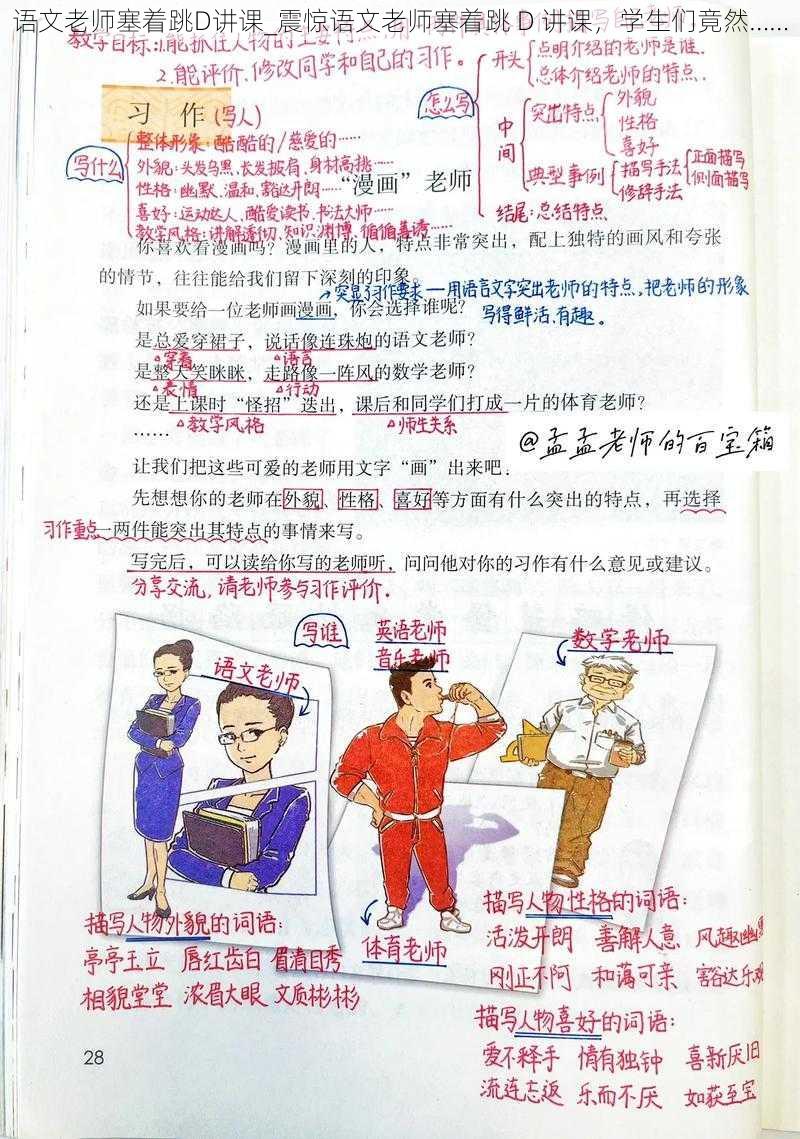 语文老师塞着跳D讲课_震惊语文老师塞着跳 D 讲课，学生们竟然……
教学目标:1.能抓住人物的主要特点
2.能评价、修改同学和自己的习作。
习 作(写人)
写什么
整体形象:酷酷的/慈爱的……
外貌:头发乌黑、长发披肩、身材高挑……
性格:幽默、温和、豁达开朗……
喜好:运动达人、酷爱读书、书法大师……
教学风格:讲解透彻、知识渊博、循循善诱……
怎么写
开头
点明介绍的老师是谁.
总体介绍老师的特点.
中间
突出特点
外貌
性格
喜好
典型事例
描写手法
正面描写
侧面描写
修辞手法
结尾:总结特点
“漫画”老师
你喜欢看漫画吗？漫画里的人，特点非常突出，配上独特的画风和夸张
的情节，往往能给我们留下深刻的印象。
突显习作要求—用语言文字突出老师的特点,把老师的形象
写得鲜活、有趣。
如果要给一位老师画漫画，你会选择谁呢？
是总爱穿裙子，说话像连珠炮的语文老师？
穿着 语言
是整天笑眯眯，走路像一阵风的数学老师？
表情 行动
还是上课时“怪招”迭出，课后和同学们打成一片的体育老师？
教学风格 师生关系
……
@孟孟老师的百宝箱
让我们把这些可爱的老师用文字“画”出来吧．
先想想你的老师在外貌、性格、喜好等方面有什么突出的特点，再选择
习作重点
一两件能突出其特点的事情来写。
写完后，可以读给你写的老师听，问问他对你的习作有什么意见或建议。
分享交流,请老师参与习作评价.
写谁
英语老师
音乐老师
数学老师
语文老师
体育老师
描写人物外貌的词语:
亭亭玉立 唇红齿白 眉清目秀
相貌堂堂 浓眉大眼 文质彬彬
描写人物性格的词语:
活泼开朗 善解人意 风趣幽默
刚正不阿 和蔼可亲 豁达乐观
描写人物喜好的词语:
爱不释手 情有独钟 喜新厌旧
流连忘返 乐而不厌 如获至宝
28